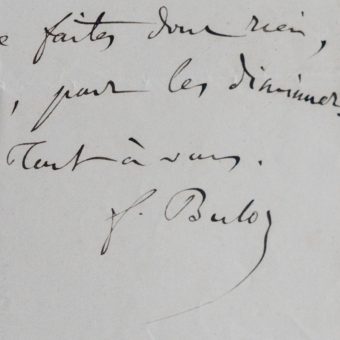 e faites donc rien,
, pour les diminuer.
Tout à vous.
F. Buloz